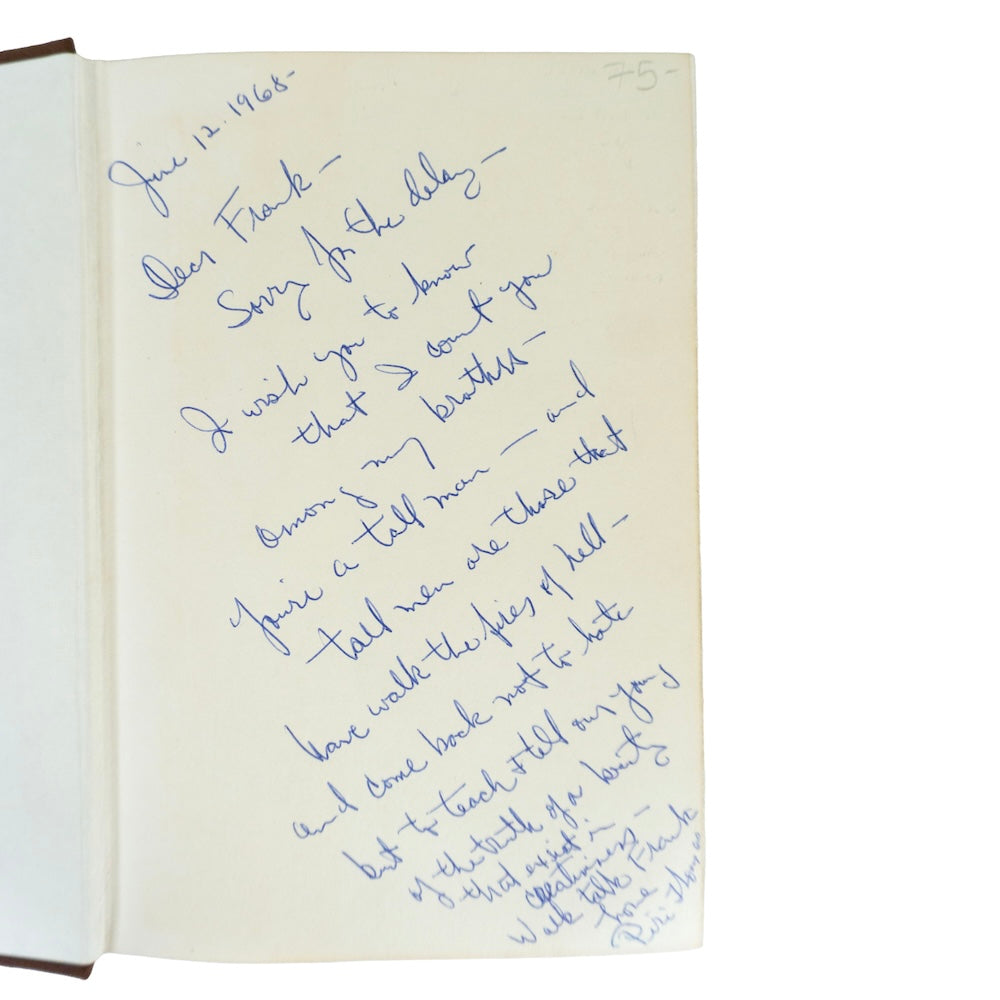 75-
June 12. 1968-
Dear Frank-
Sorry for the delay-
I wish you to know
that I count you
among my brothers-
You're a tall man - and
tall men are those that
have walk the fires of hell-
and come back not to hate
but to teach & tell our young
of the truth of a beauty
that exist in
creativiness-
Walk tall Frank
Piri Thomas